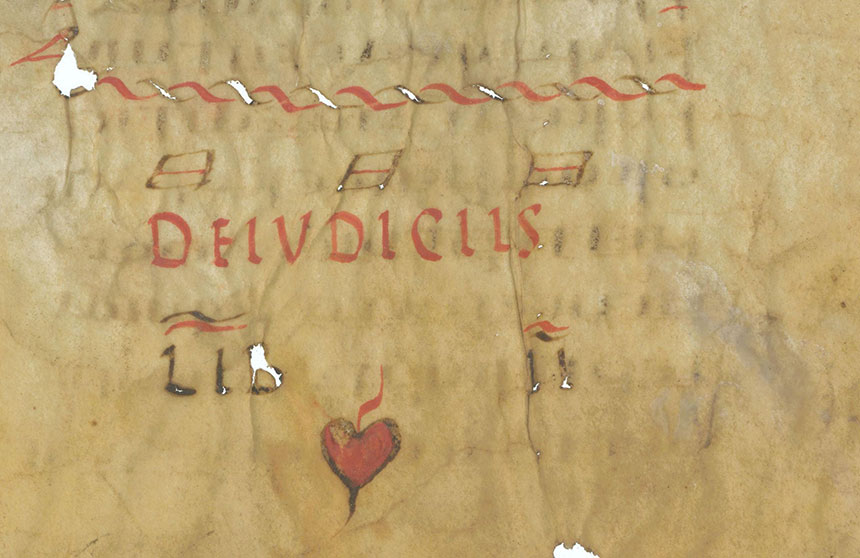 DEIVDICIIS
LIB II